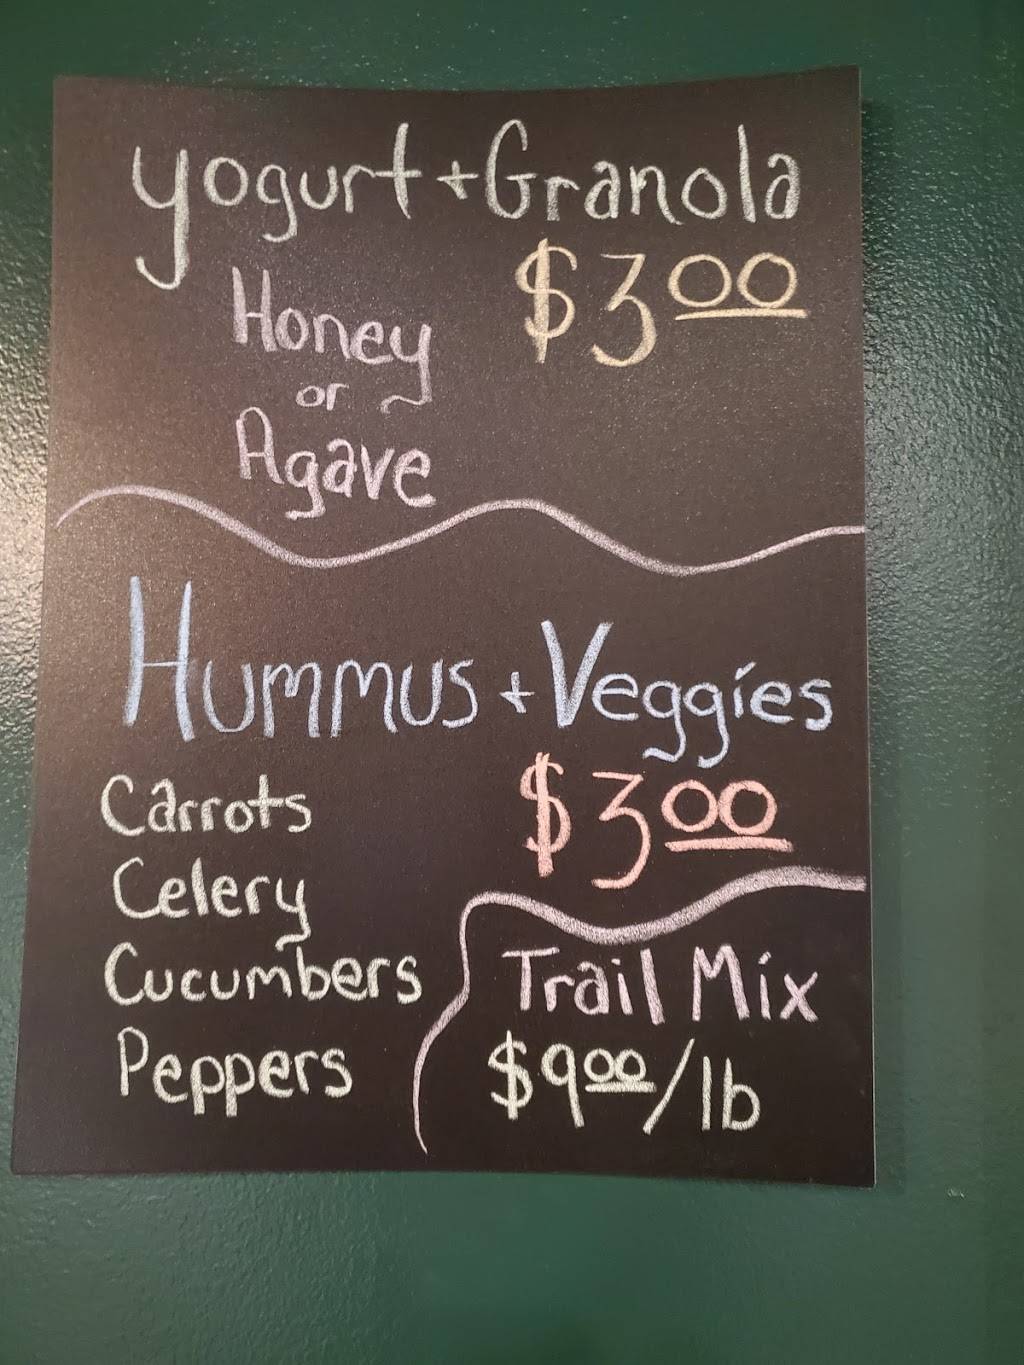 yogurt + Granola
$3.00
Honey
or
Agave
Hummus + Veggies
$3.00
Carrots
Celery
Cucumbers
Peppers
Trail Mix
$9.00/lb